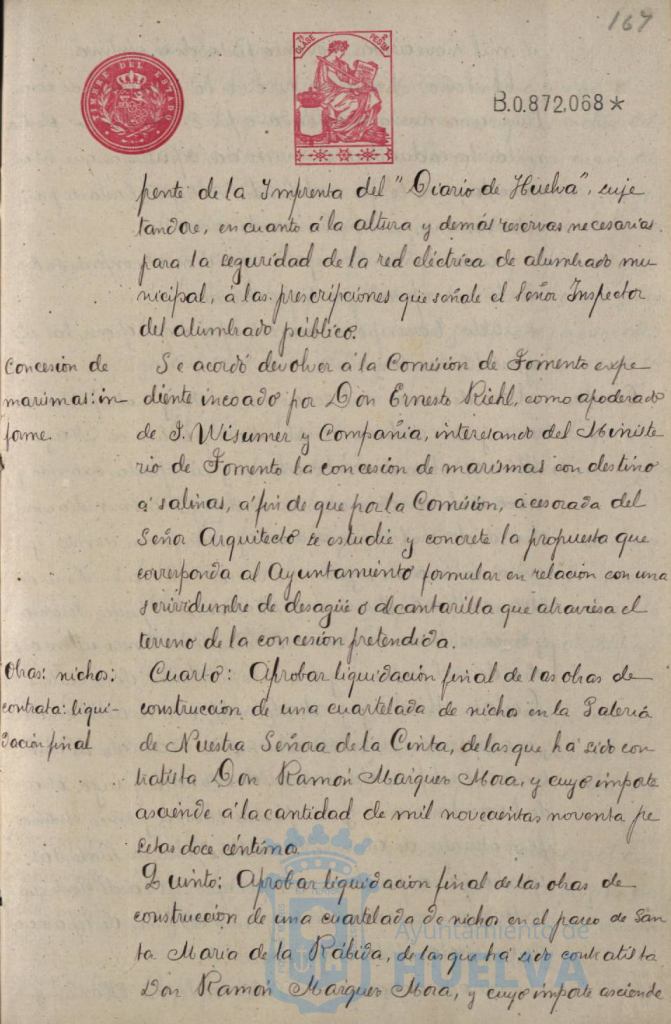 167
TIMBRE DEL ESTADO
CLASE
B.0.872,068*
pente de la Imprenta del "Diario de Huelva", suje
tandose, en cuanto á la altura y demás reservas necesarias
para la seguridad de la red eléctrica de alumbrado mu
nicipal, á las prescripciones que señale el Señor Inspector
del alumbrado público.
Concesión de
marismas: in
forme.
Se acordó devolver á la Comisión de Fomento expe
diente incoado por Don Ernesto Riehl, como apoderado
de J. Wisumer y Compañia, interesando del Ministe
rio de Fomento la concesión de marismas con destino
á salinas, á fin de que por la Comisión, acesorada del
Señor Arquitecto se estudie y concrete la propuesta que
corresponda al Ayuntamiento formular en relación con una
servidumbre de desagüe o alcantarilla que atraviesa el
terreno de la concesión pretendida.
Obras: nichos:
contrata: liqui-
dación final
Cuarto: Aprobar liquidación final de las obras de
construcción de una cuartelada de nichos en la Galeria
de Nuestra Señora de la Cinta, de las que há sido con
tratista Don Ramón Marquez Mora, y cuyo importe
asciende á la cantidad de mil novecientas noventa pe
setas doce céntimos.
Quinto: Aprobar liquidación final de las obras de
construcción de una cuartelada de nichos en el paseo de San
ta Maria de la Rábida, de las que há sido contratista
Don Ramón Marquez Mora, y cuyo importe asciende
Ayuntamiento de
HUELVA